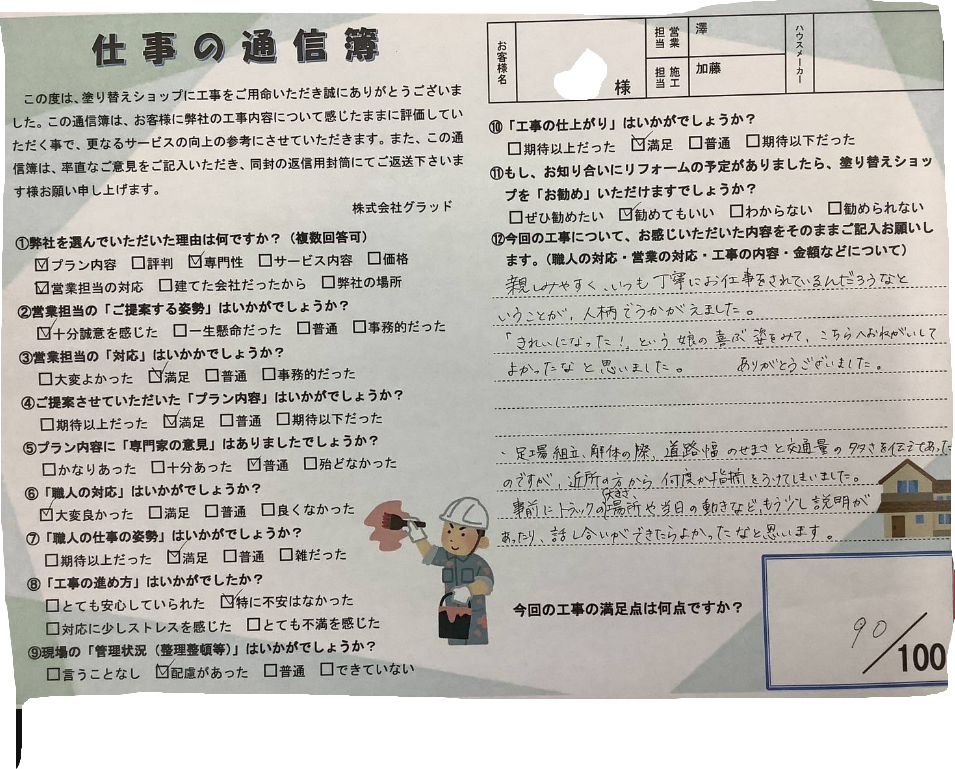 仕事の通信簿
この度は、塗り替えショップに工事をご用命いただき誠にありがとうございま
した。この通信簿は、お客様に弊社の工事内容について感じたままに評価してい
ただく事で、更なるサービスの向上の参考にさせていただきます。また、この通
信簿は、率直なご意見をご記入いただき、同封の返信用封筒にてご返送下さいま
す様お願い申し上げます。
株式会社グラッド
①弊社を選んでいただいた理由は何ですか？（複数回答可）
☑プラン内容 □評判 ☑専門性 □サービス内容 □価格
☑営業担当の対応 □建てた会社だったから □弊社の場所
②営業担当の「ご提案する姿勢」はいかがでしょうか？
☑十分誠意を感じた □一生懸命だった □普通 □事務的だった
③営業担当の「対応」はいかかでしょうか？
□大変よかった ☑満足 □普通 □事務的だった
④ご提案させていただいた「プラン内容」はいかがでしょうか？
□期待以上だった ☑満足 □普通 □期待以下だった
⑤プラン内容に「専門家の意見」はありましたでしょうか？
□かなりあった □十分あった ☑普通 □殆どなかった
⑥「職人の対応」はいかがでしょうか？
☑大変良かった □満足 □普通 □良くなかった
⑦「職人の仕事の姿勢」はいかがでしょうか？
□期待以上だった ☑満足 □普通 □雑だった
⑧「工事の進め方」はいかがでしたか？
□とても安心していられた ☑特に不安はなかった
□対応に少しストレスを感じた □とても不満を感じた
⑨現場の「管理状況（整理整頓等）」はいかがでしょうか？
□言うことなし ☑配慮があった □普通 □できていない
お客様名 様 営業担当 澤 ハウスメーカー
施工担当 加藤
⑩「工事の仕上がり」はいかがでしょうか？
□期待以上だった ☑満足 □普通 □期待以下だった
⑪もし、お知り合いにリフォームの予定がありましたら、塗り替えショッ
プを「お勧め」いただけますでしょうか？
□ぜひ勧めたい ☑勧めてもいい □わからない □勧められない
⑫今回の工事について、お感じいただいた内容をそのままご記入お願いし
ます。（職人の対応・営業の対応・工事の内容・金額などについて）
親しみやすく、いつも丁寧にお仕事をされているんだろうなと
いうことが、人柄でうかがえました。
「きれいになった！」という娘の喜ぶ姿をみて、こちらへおねがいして
よかったなと思いました。 ありがとうございました。
・足場組立、解体の際、道路幅のせまさと交通量の多さを伝えてあった
のですが、近所の方から、何度か指摘をうけてしまいました。
事前にトラックの大きさ、場所や当日の動きなど、もう少し説明が
あったり、話し合いができたらよかったなと思います。
今回の工事の満足点は何点ですか？
90/100